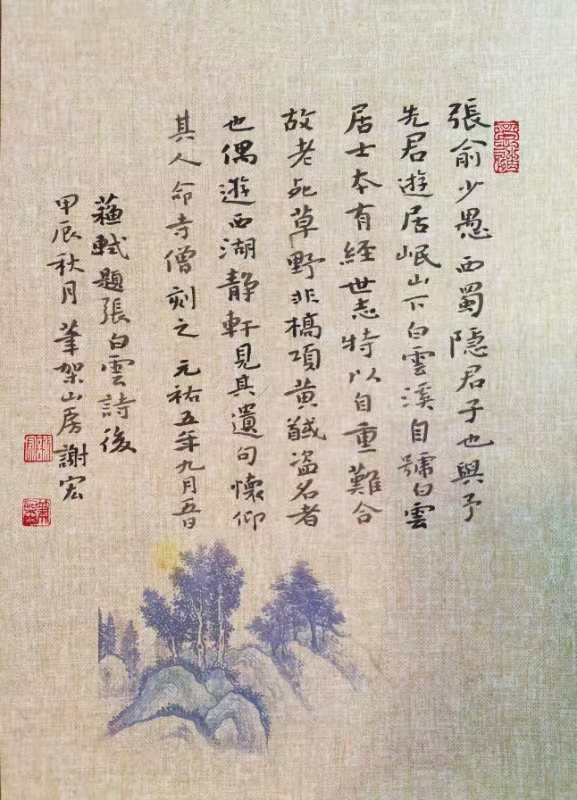 張俞少愚西蜀隱君子也與予
先君遊居岷山下白雲溪自號白雲
居士本有經世志特以自重難合
故老死草野非槁項黃馘盜名者
也偶遊西湖靜軒見其遺句懷仰
其人命寺僧刻之 元祐五年九月五日
蘇軾題張白雲詩後
甲辰秋月 筆架山房 謝宏